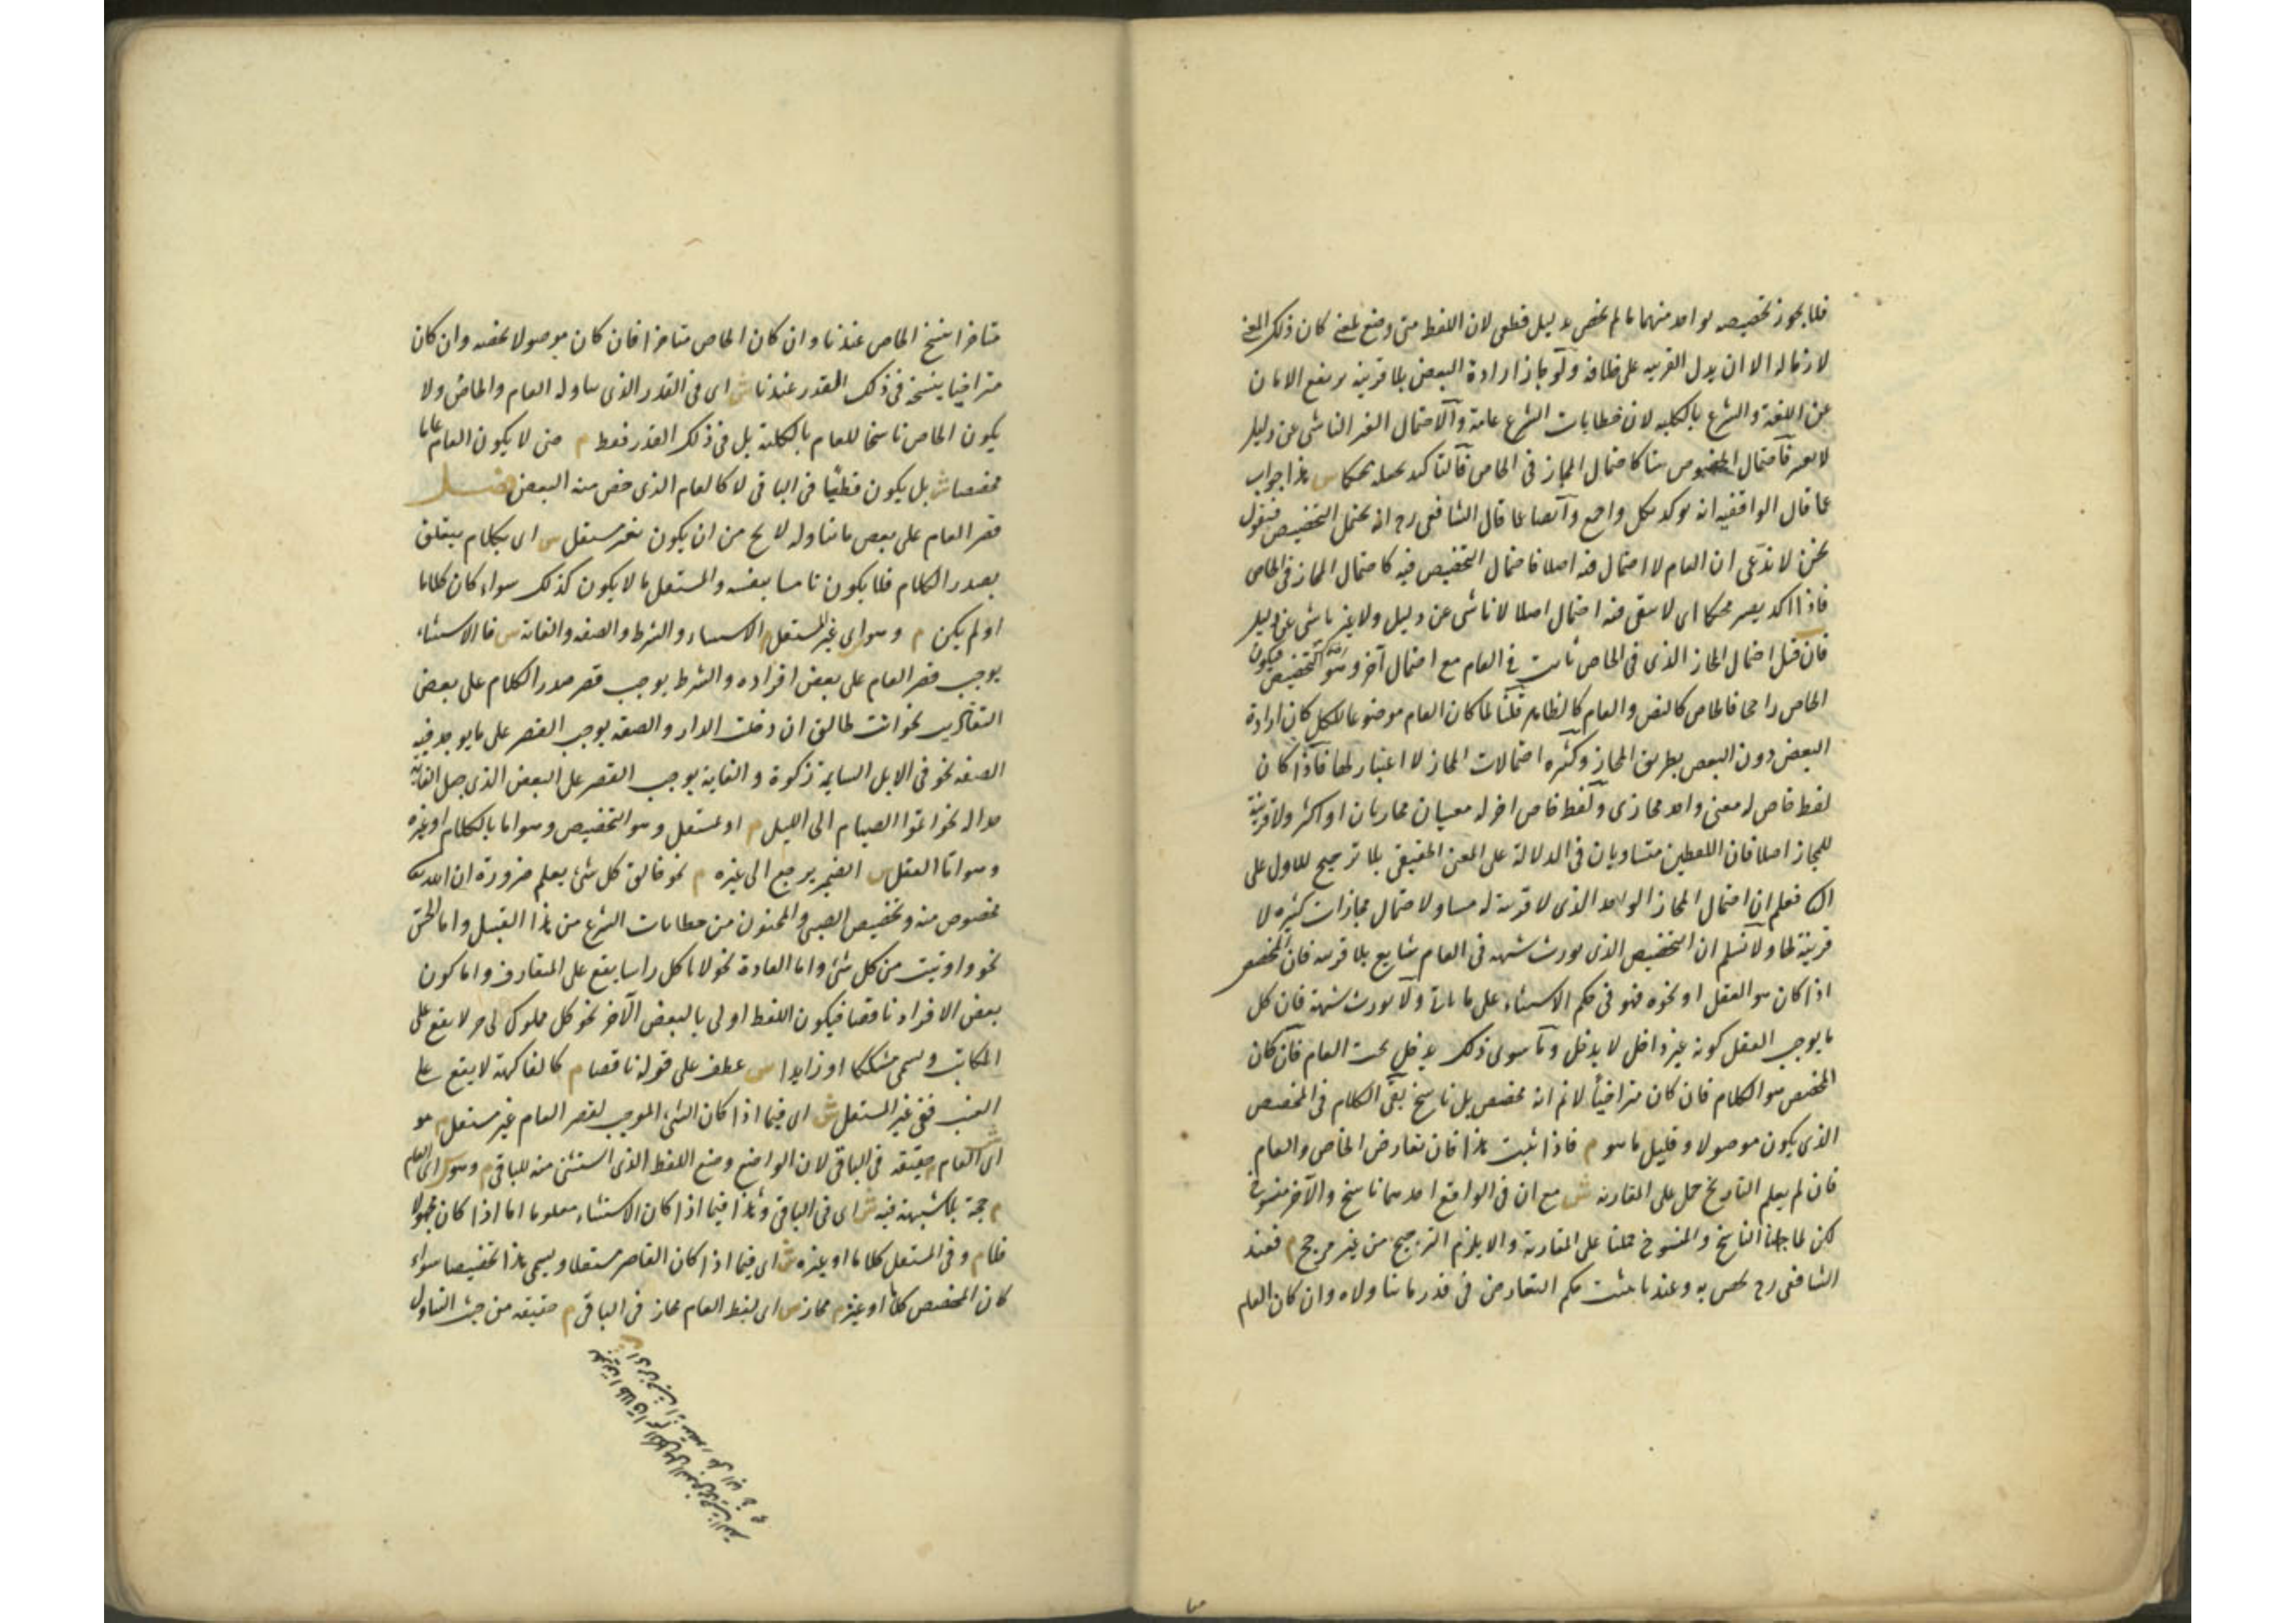 فلا يجوز تخصيصه بواحد منهما ما لم يخص بدليل قطعى لان اللفظ متى وضع لمعنى كان ذلك المعنى
لازما له الا ان يدل القرينه على خلافه ولو جاز ارادة البعض بلا قرينة يرتفع الامان
عن اللغة والشرع بالكليه لان خطابات الشرع عامة والاحتمال الغير الناشى عن دليل
لا يعتبر فاحتمال الخصوص هنا كاحتمال المجاز فى الخاص فالتاكيد يجعله محكما س هذا جواب
عما قال الواقفيه انه يوكد بكل واجمع وايضا عما قال الشافعى رح انه يحتمل التخصيص فنقول
نحن لا ندعى ان العام لا احتمال فيه اصلا فاحتمال التخصيص فيه كاحتمال المجاز فى الخاص
فاذا اكد يصير محكما اى لا يبقى فيه احتمال اصلا لا ناشى عن دليل ولا غير ناشى عن دليل
فان قيل احتمال المجاز الذى فى الخاص ثابت فى العام مع احتمال آخر وهو التخصيص فيكون
الخاص راجحا فالخاص كالنص والعام كالظاهر قلنا لما كان العام موضوعا للكل كان ارادة
البعض دون البعض بطريق المجاز وكثرة احتمالات المجاز لا اعتبار لها فاذا كان
لفظ خاص له معنى واحد مجازى ولفظ خاص اخر له معنيان مجازيان او اكثر ولا قرينة
للمجاز اصلا فان اللفظين متساويان فى الدلالة على المعنى الحقيقى بلا ترجيح للاول على
الث فعلم ان احتمال المجاز الواحد الذى لا قرينة له مساو لاحتمال مجازات كثيره لا
قرينة لها ولا نسلم ان التخصيص الذى يورث شبهه فى العام شايع بلا قرينه فان المخصص
اذا كان هو العقل او نحوه فهو فى حكم الاستثناء على ما ياتى ولا يورث شبهة فان كل
ما يوجب العقل كونه غير داخل لا يدخل وما سوى ذلك يدخل تحت العام فان كان
المخصص هو الكلام فان كان متراخيا لا نم انه مخصص بل ناسخ بقى الكلام فى المخصص
الذى يكون موصولا وقليل ما هو م فاذا ثبت هذا فان تعارض الخاص والعام
فان لم يعلم التاريخ حمل على المقارنه ش مع ان فى الواقع احدهما ناسخ والآخر منسوخ
لكن لما جهلنا الناسخ والمنسوخ حملنا على المقارنة والا يلزم الترجيح من غير مرجح م فعند
الشافعى رح يخص به وعندنا يثبت حكم التعارض فى قدر ما تناولاه وان كان العام
متاخرا ينسخ الخاص عندنا وان كان الخاص متاخرا فان كان موصولا يخصه وان كان
متراخيا ينسخه فى ذلك القدر عندنا ش اى فى القدر الذى يتناوله العام والخاص ولا
يكون الخاص ناسخا للعام بالكلية بل فى ذلك القدر فقط م حتى لا يكون العام عاما
مخصصا ش بل يكون قطعيا فى الباقى لا كالعام الذى خص منه البعض فصل
قصر العام على بعض ما يتناوله لا يخ من ان يكون بغير مستقل س اى بكلام يتعلق
بصدر الكلام فلا يكون تاما بنفسه والمستقل ما لا يكون كذلك سواء كان كلاما
او لم يكن م وهو اى غير المستقل م الاستثناء والشرط والصفه والغاية س فالاستثناء
يوجب قصر العام على بعض افراده والشرط يوجب قصر صدر الكلام على بعض
التقادير نحو انت طالق ان دخلت الدار والصفه يوجب القصر على ما يوجد فيه
الصفه نحو فى الابل السايمة زكوة والغاية يوجب القصر على البعض الذى جعل الغاية
حدا له نحو اتموا الصيام الى الليل م او بمستقل وهو التخصيص وهو اما بالكلام او غيره
وهو اما العقل س الضمير يرجع الى غيره م نحو خالق كل شئ يعلم ضرورة ان الله
مخصوص منه وتخصيص الصبى والمجنون من خطابات الشرع من هذا القبيل واما الحس
نحو واوتيت من كل شئ واما العادة نحو لا ياكل راسا يقع على المتعارف واما كون
بعض الافراد ناقصا فيكون اللفظ اولى بالبعض الآخر نحو كل مملوك لى حر لا يقع على
المكاتب ويسمى مشككا او زايدا س عطف على قوله ناقصا م كالفاكهة لا يقع على
العنب ففى غير المستقل ش اى فيما اذا كان الشئ الموجب لقصر العام غير مستقل م هو
ش اى العام م حقيقه فى الباقى لان الواضع وضع اللفظ الذى استثنى منه للباقى م وهو س اى العام
م حجة بلا شبهة فيه ش اى فى الباقى وهذا فيما اذا كان الاستثناء معلوما اما اذا كان مجهولا
فلا م وفى المستقل كلاما او غيره ش اى فيما اذا كان القاصر مستقلا ويسمى هذا تخصيصا سواء
كان المخصص كلاما او غيره م مجاز س اى لفظ العام مجاز فى الباقى م حقيقه من حيث التناول